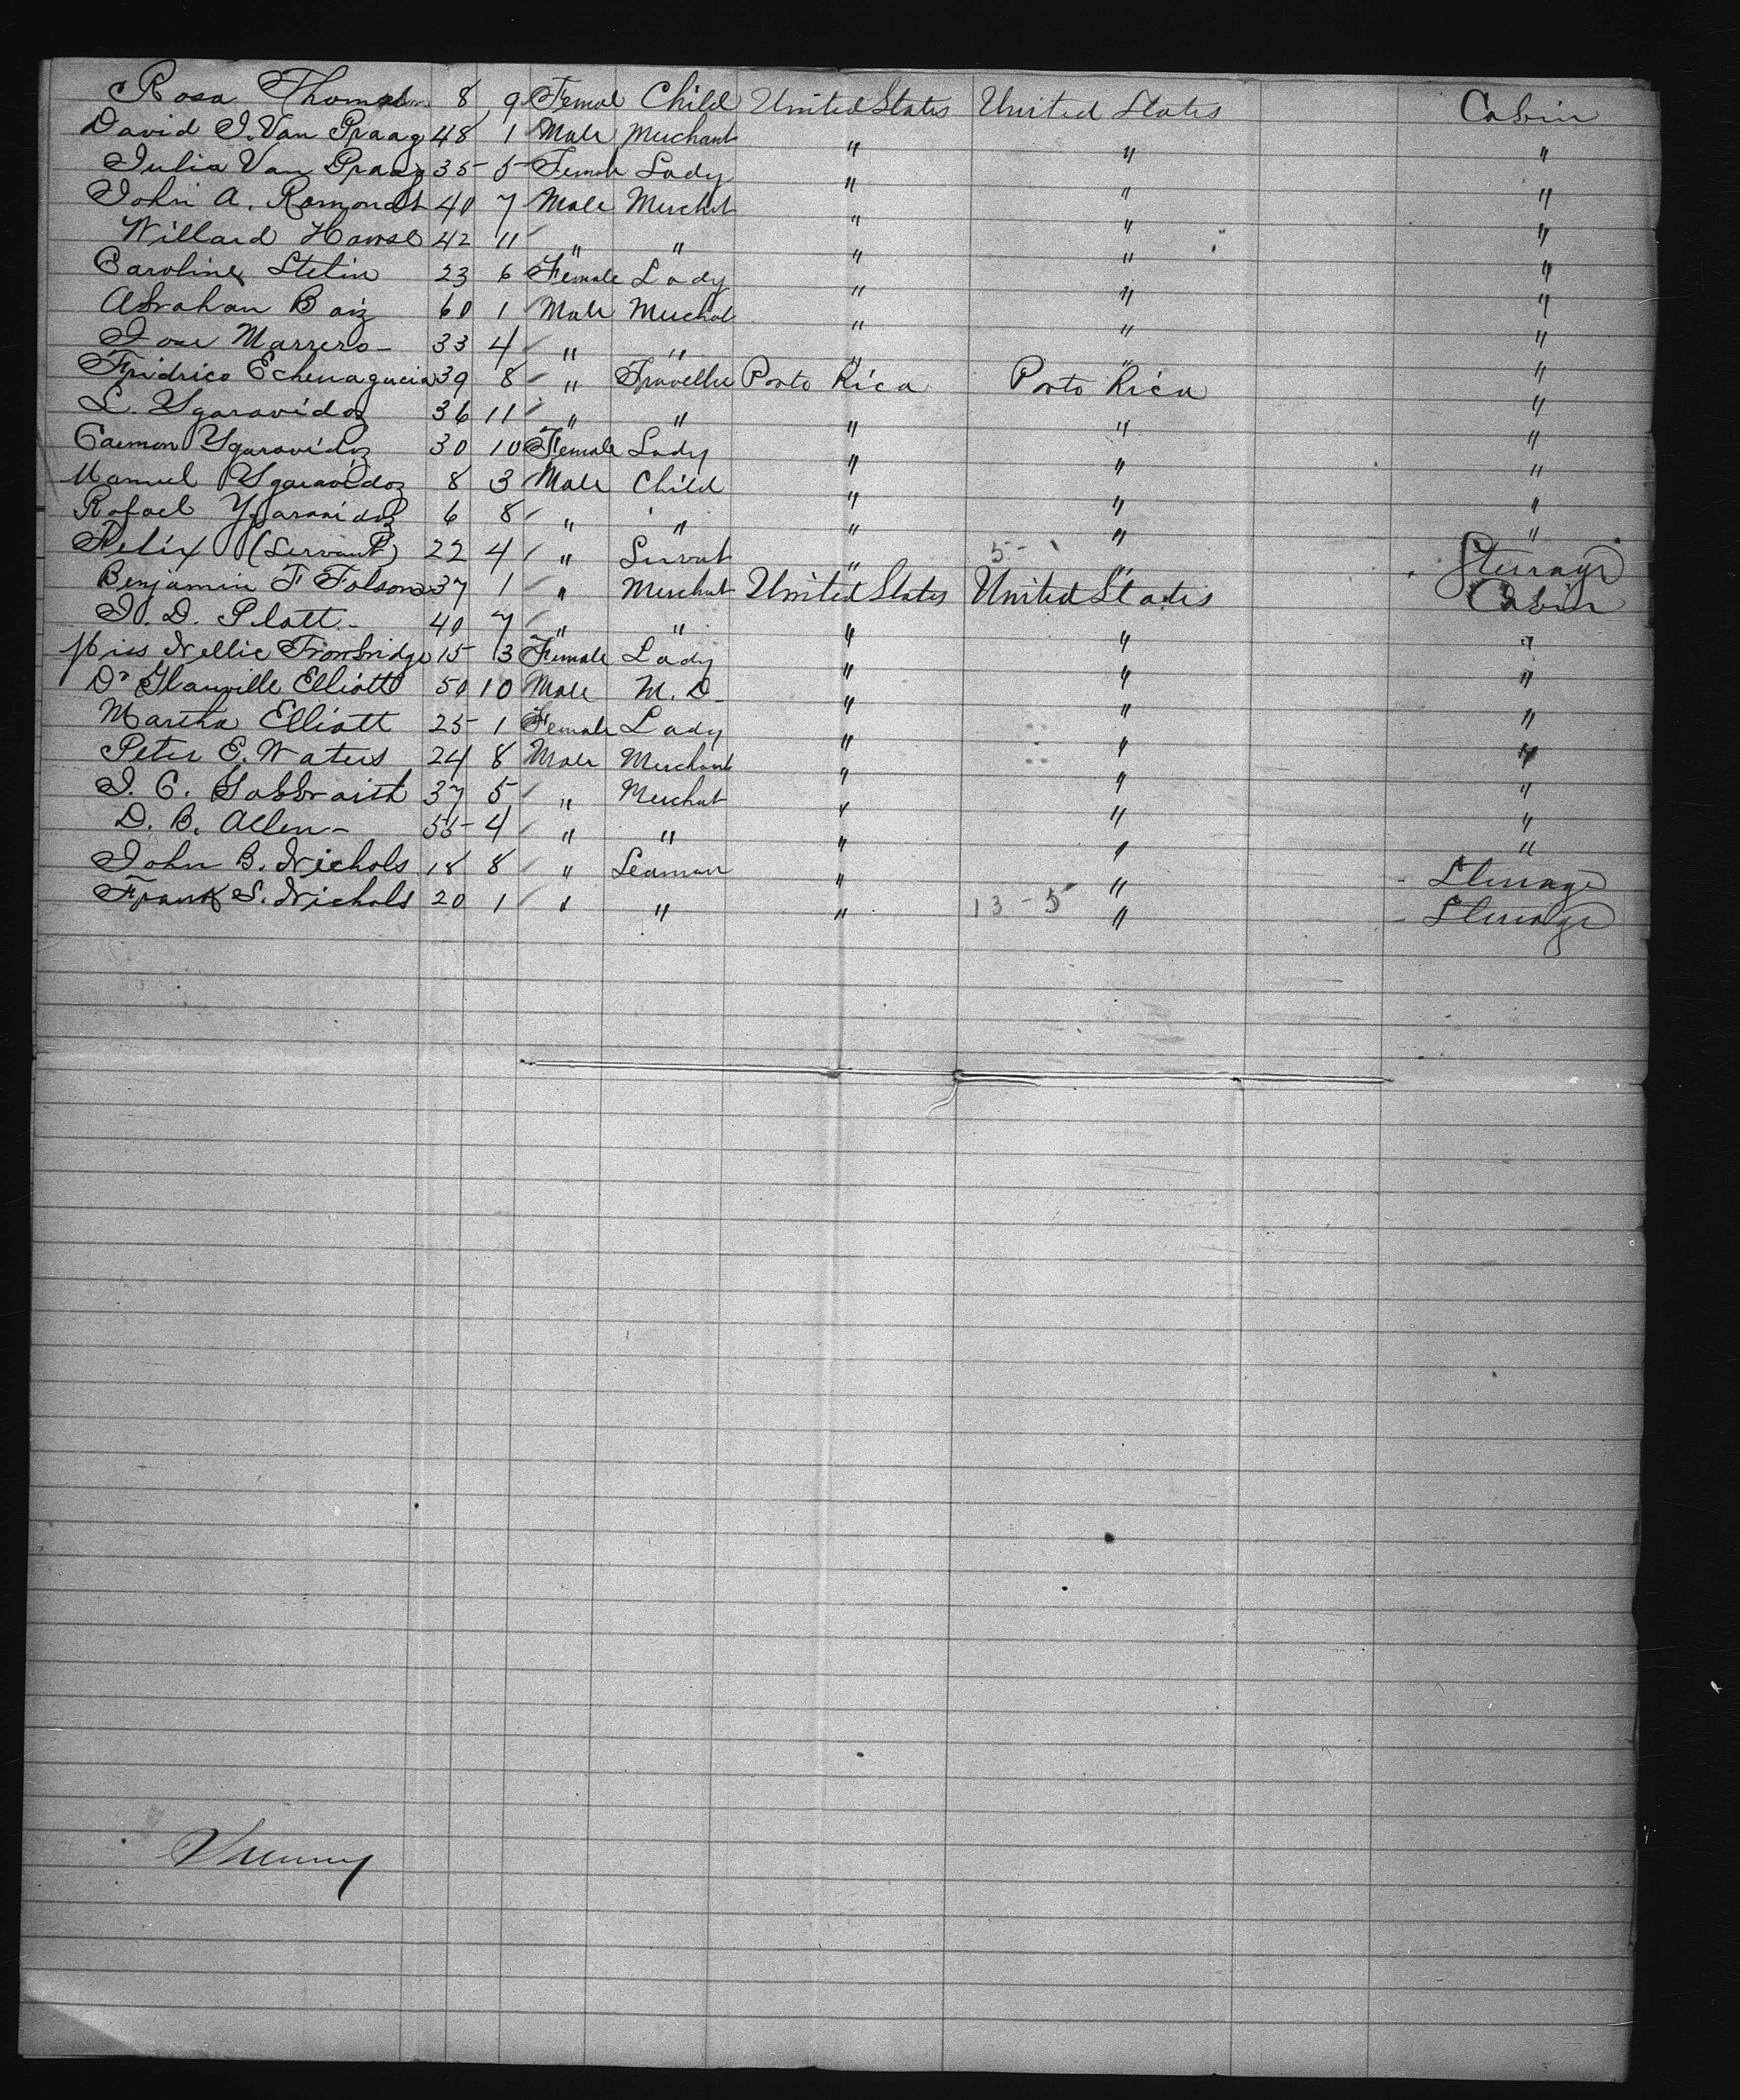 Rosa Thompson 8 9 Femal Child United States United States Cabin
David J. Van Praag 48 1 Male Merchant " " "
Julia Van Praag 35 5 Female Lady " " "
John A. Romondt 40 7 Male Merchat " " "
Willard Hawse 42 11 " " " " "
Caroline Stelin 23 6 Female Lady " " "
Abrahan Baiz 60 1 Male Merchat " " "
Jose Marrero 33 4 " " " " "
Fridrico Echenagucia 39 8 " Traveller Porto Rica Porto Rica "
L. Ygaravidoz 36 11 " " " " "
Carmon Ygaravidoz 30 10 Female Lady " " "
Manuel Ygaravidoz 8 3 Male Child " " "
Rafael Ygaravidoz 6 8 " " " " "
Felix (Servant) 22 4 " Servat " 5 - " Sterrage
Benjamin F Folsom 37 1 " Merchat United States United States Cabin
J. D. Platt - 40 7 " " " " "
Miss Nellie Trowbridge 15 3 Female Lady " " "
Dr Glanville Elliott 50 10 Male M. D " " "
Martha Elliott 25 1 Female Lady " " "
Peter E. Waters 24 8 Male Merchant " " "
J. C. Gabbraith 37 5 " Merchat " " "
D. B. Allen - 55 4 " " " " "
John B. Nichols 18 8 " Seaman " " - Sterrage
Frank S. Nichols 20 1 " " " 13 - 5 " - Sterrage